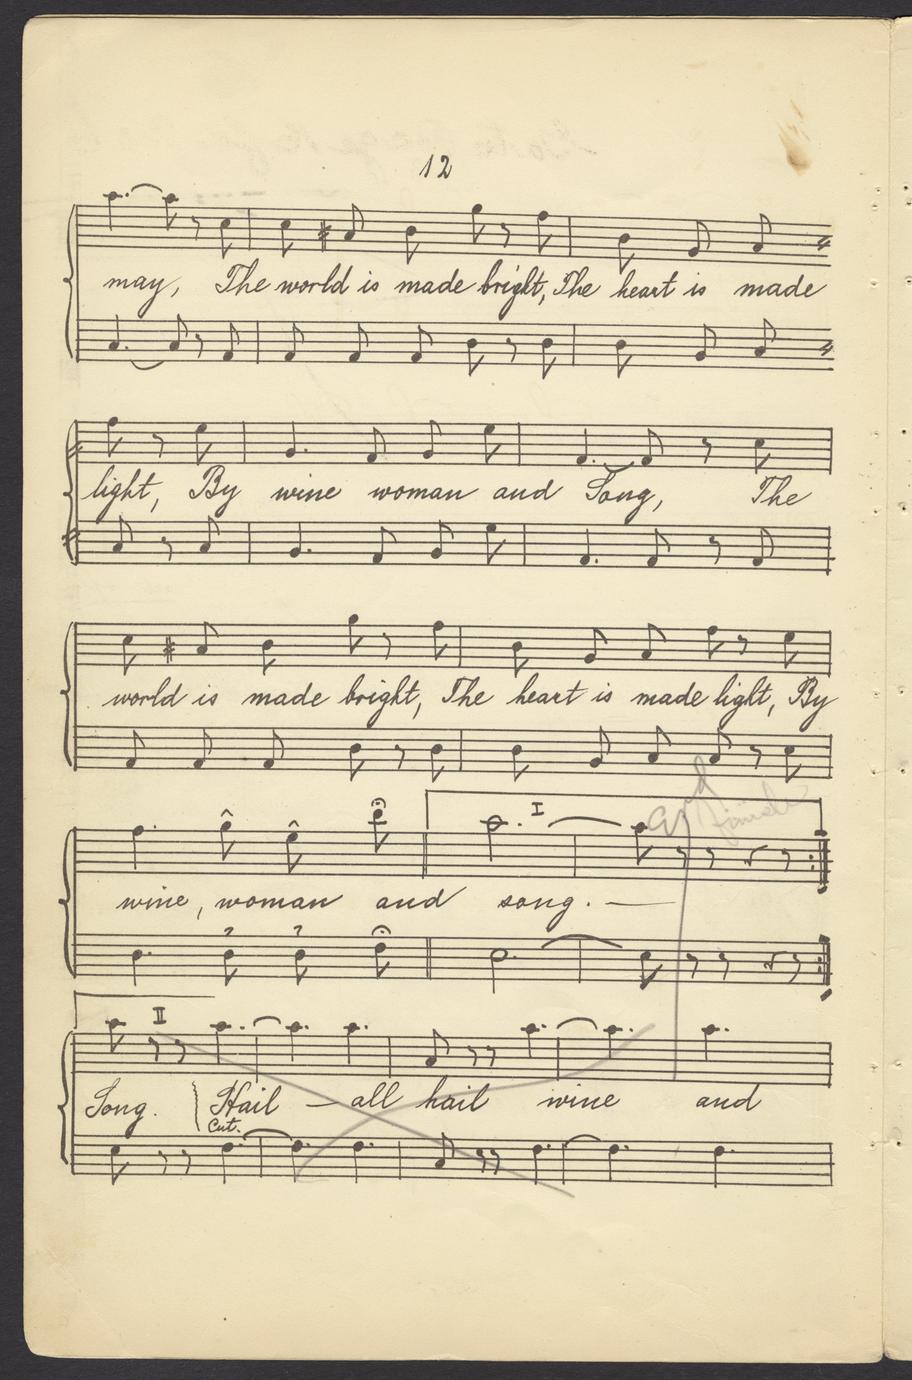 12
may, The world is made bright, The heart is made
light, By wine woman and Song, The
world is made bright, The heart is made light, By
I
and
wine, woman and song. —
II
Song. Hail — all hail wine and
Cut.